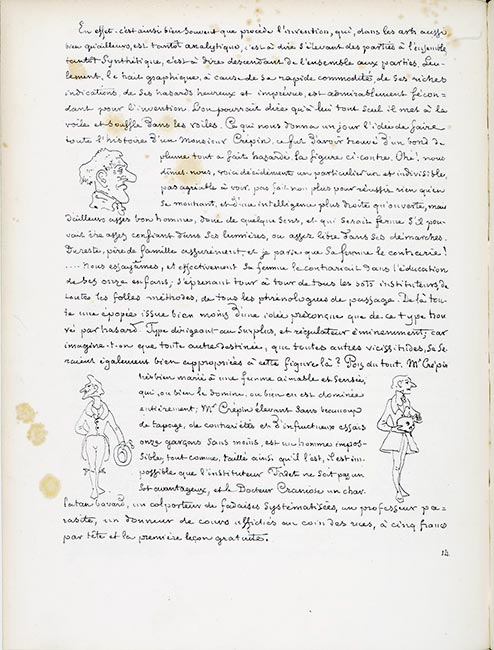 En effet c'est ainsi bien souvent que procède l'invention, qui, dans les arts aussi
bien qu'ailleurs, est tantôt analytique, c'est à dire s'élevant des parties à l'ensemble,
tantôt Synthétique, c'est à dire descendant de l'ensemble aux parties. Seu-
lement, le trait graphique, à cause de sa rapide commodité, de ses riches
indications, de ses hasards heureux et imprévus, est admirablement fécon-
dant pour l'invention. L'on pourrait dire qu'à lui tout seul il met à la
voile et souffle dans les voiles. Ce qui nous donna un jour l'idée de faire
toute l'histoire d'un Monsieur Crépin, ce fut d'avoir trouvé d'un bond de
plume tout a fait hasardé la figure ci-contre. Ohé! nous
dimes-nous, voici décidément un particulier un et indivisible,
pas agréable à voir, pas fait non plus pour réussir rien qu'en
se montrant, et d'une intelligence plus droite qu'ouverte, mais
d'ailleurs assez bon homme, doué de quelque sens, et qui serait ferme s'il pou-
vait être assez confiant dans ses lumières, ou assez libre dans ses démarches.
Du reste, père de famille assurément et je parie que sa femme le contrarie!
.... Nous essayâmes, et effectivement sa femme le contrariait dans l'éducation
de ses onze enfans, s'éprenant tour à tour de tous les sots instituteurs, de
toutes les folles méthodes, de tous les phrénologues de passage. De là tou-
te une épopée issue bien moins d'une idée préconçue que de ce type trou-
vé par hasard. Type dirigeant au surplus, et régulateur éminemment; car
imagine-t-on que toute autre destinée, que toutes autres vicissitudes, se se-
raient également bien appropriées à cette figure là? Pas du tout. Mr Crépin
très bien marié à une femme aimable et sensée,
qui, ou bien le domine, ou bien en est dominée
entièrement; Mr Crépin élevant sans beaucoup
de tapage, de contrariétés et d'infructueux essais
onze garçons sans moins, est un homme impos-
sible; tout comme, taillé ainsi qu'il l'est, il est im-
possible que l'instituteur Fadet ne soit pas un
sot avantageux, et le Docteur Craniose un char-
latan bavard, un colporteur de fadaises systématisées, un professeur pa-
rasite, un donneur de cours affichés au coin des rues, à cinq francs
par tête et la première leçon gratuite.
14.